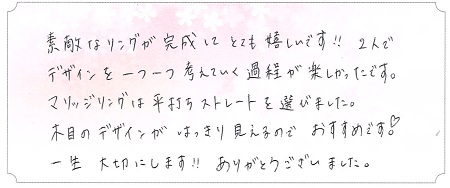 素敵なリングが完成してとても嬉しいです!! 2人で
デザインを一つ一つ考えていく過程が楽しかったです。
マリッジリングは平打ちストレートを選びました。
木目のデザインがはっきり見えるのでおすすめです♡
一生 大切にします!! ありがとうございました。